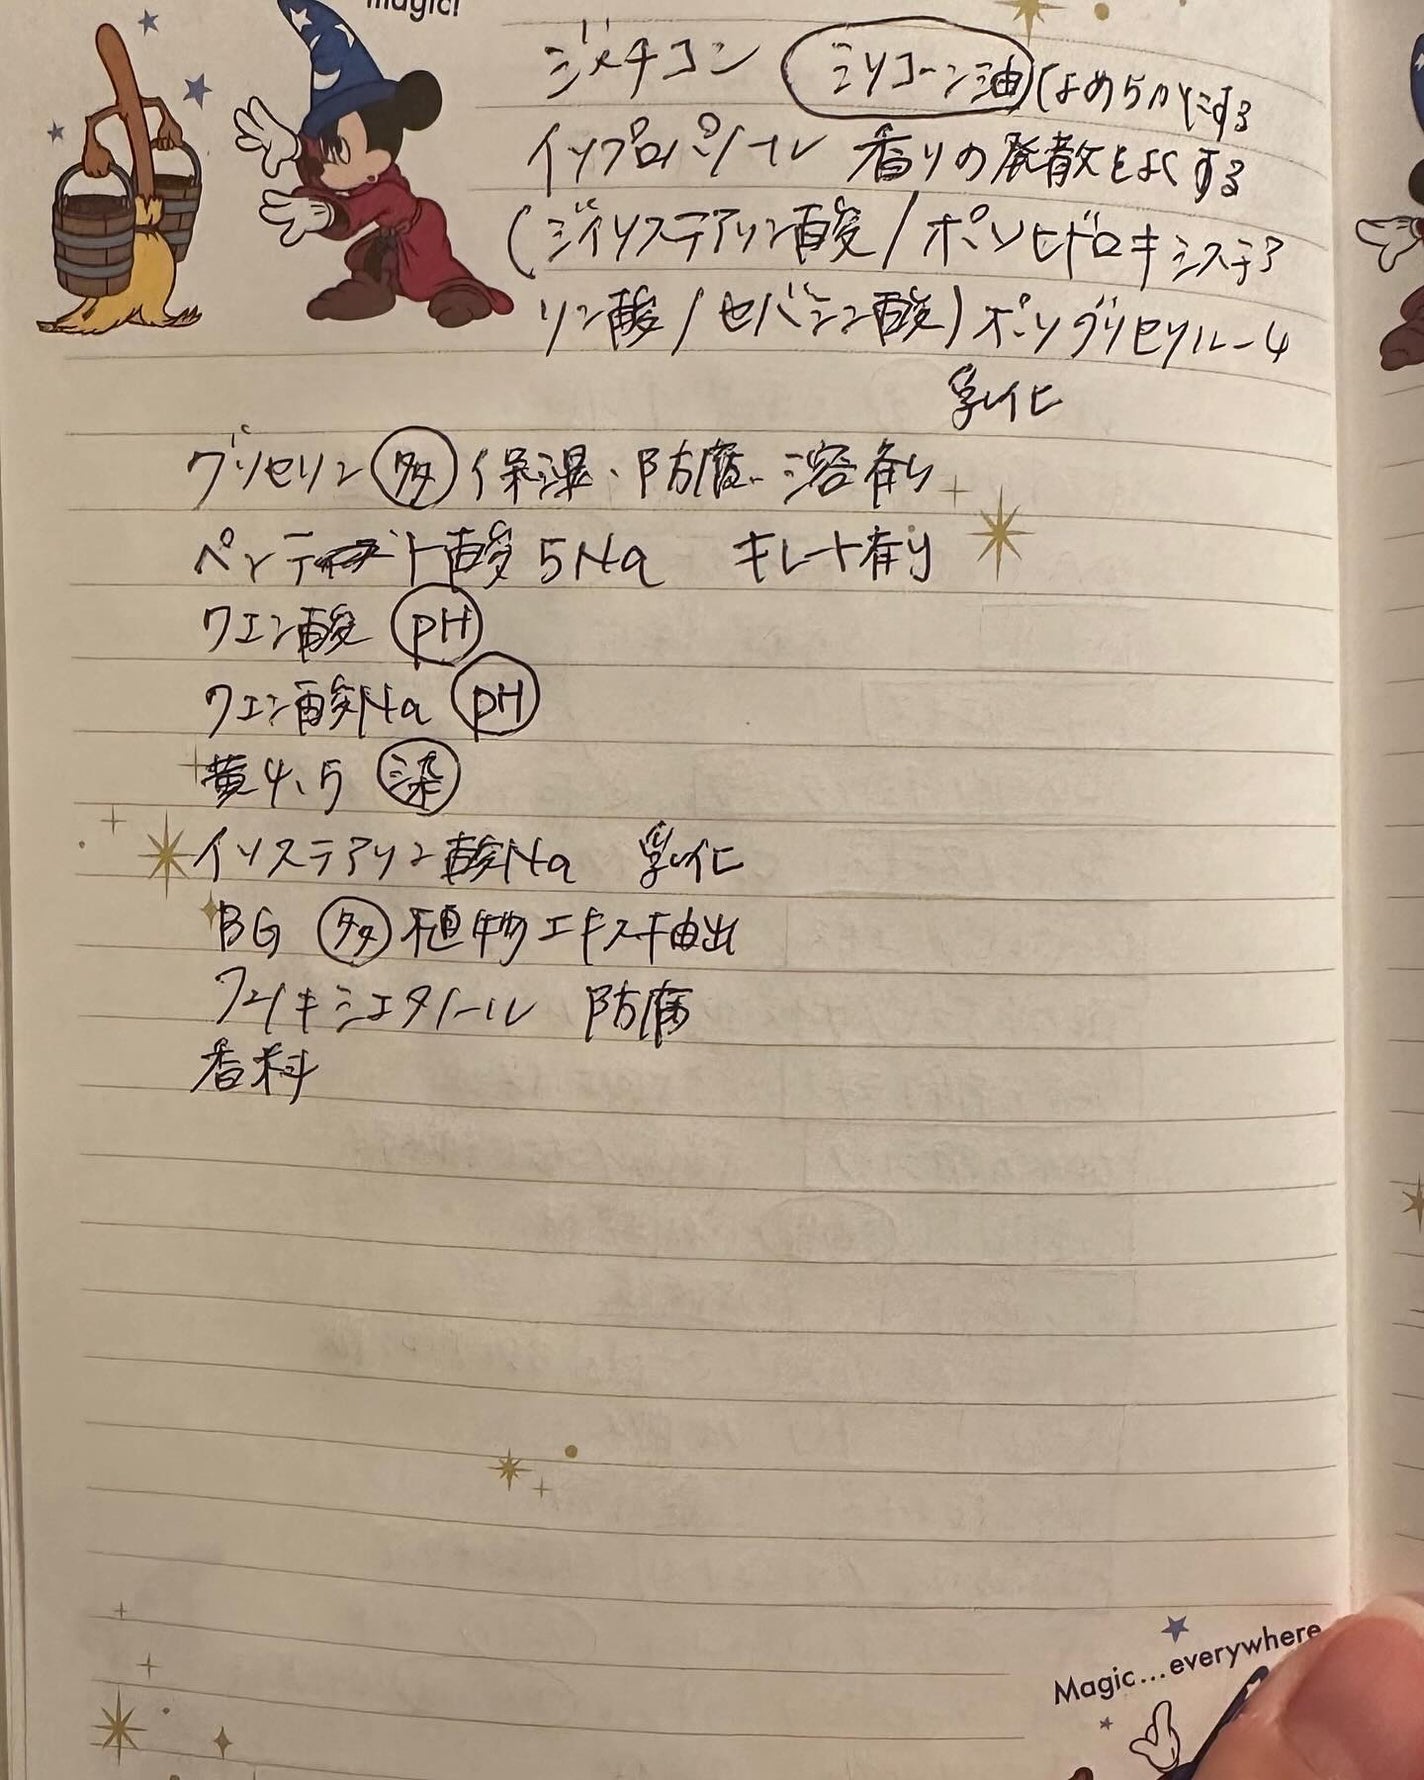 magic!
ジメチコン シリコーン油 なめらかにする
イソプロパノール 香りの発散をよくする
(ジイソステアリン酸/ポリヒドロキシステア
リン酸/セバシン酸)ポリグリセリル-4
乳化
グリセリン 多 保湿、防腐、溶剤
ペンテト酸5Na キレート剤
クエン酸 pH
クエン酸Na pH
黄4、5 染
イソステアリン酸Na 乳化
BG 多 植物エキス抽出
フェノキシエタノール 防腐
香料
Magic...everywhere